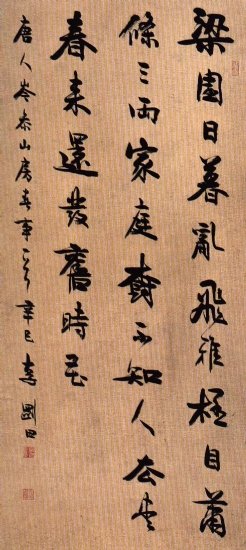 梁園日暮亂飛雅極目蕭
條三兩家庭樹不知人去盡
春來還發舊時花
唐人岑參山房春事辛巳李剛田